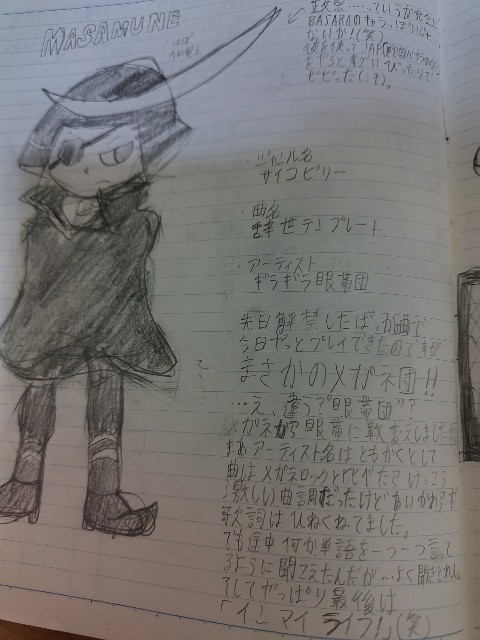 MASAMUNE
政宗……っていうか完全に
BASARAのもろっぽいじゃ
ないか!(笑)
彼を使って
をやるとすごいぴったりで
ビビった(汗)。
・ジャンル名
サイコビリー
・曲名
辞世テンプレート
・アーティスト
ギラギラ眼帯団
先日解禁したばっか曲で
今日やっとプレイできたのですが
まさかのメガネ団!!
…え、違う?"眼帯団"?
メガネから眼帯に
まあアーティスト名はともかくとして
曲はメガネロックと比べたらけっこう
激しい曲調だったけどあいかわらず
歌詞はひねくれてました。
でも途中何か単語を一つ一つ言って
るように聞こえたんだが…よく聞きとれん。
そしてやっぱり最後は
「イン マイ ライフ!」(笑)